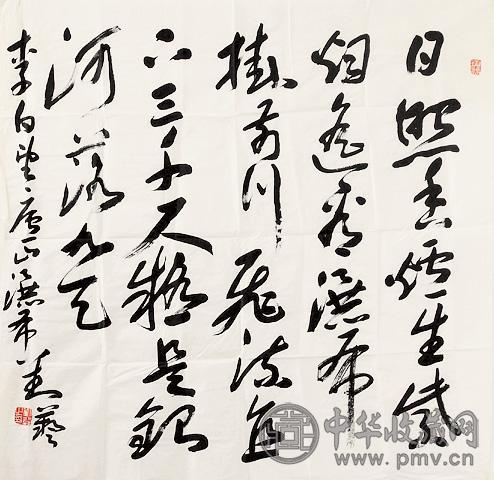 日照香爐生紫
烟遥看瀑布
掛前川飛流直
下三千尺疑是銀
河落九天
李白望庐山瀑布
中华收藏网
www.pmv.cn